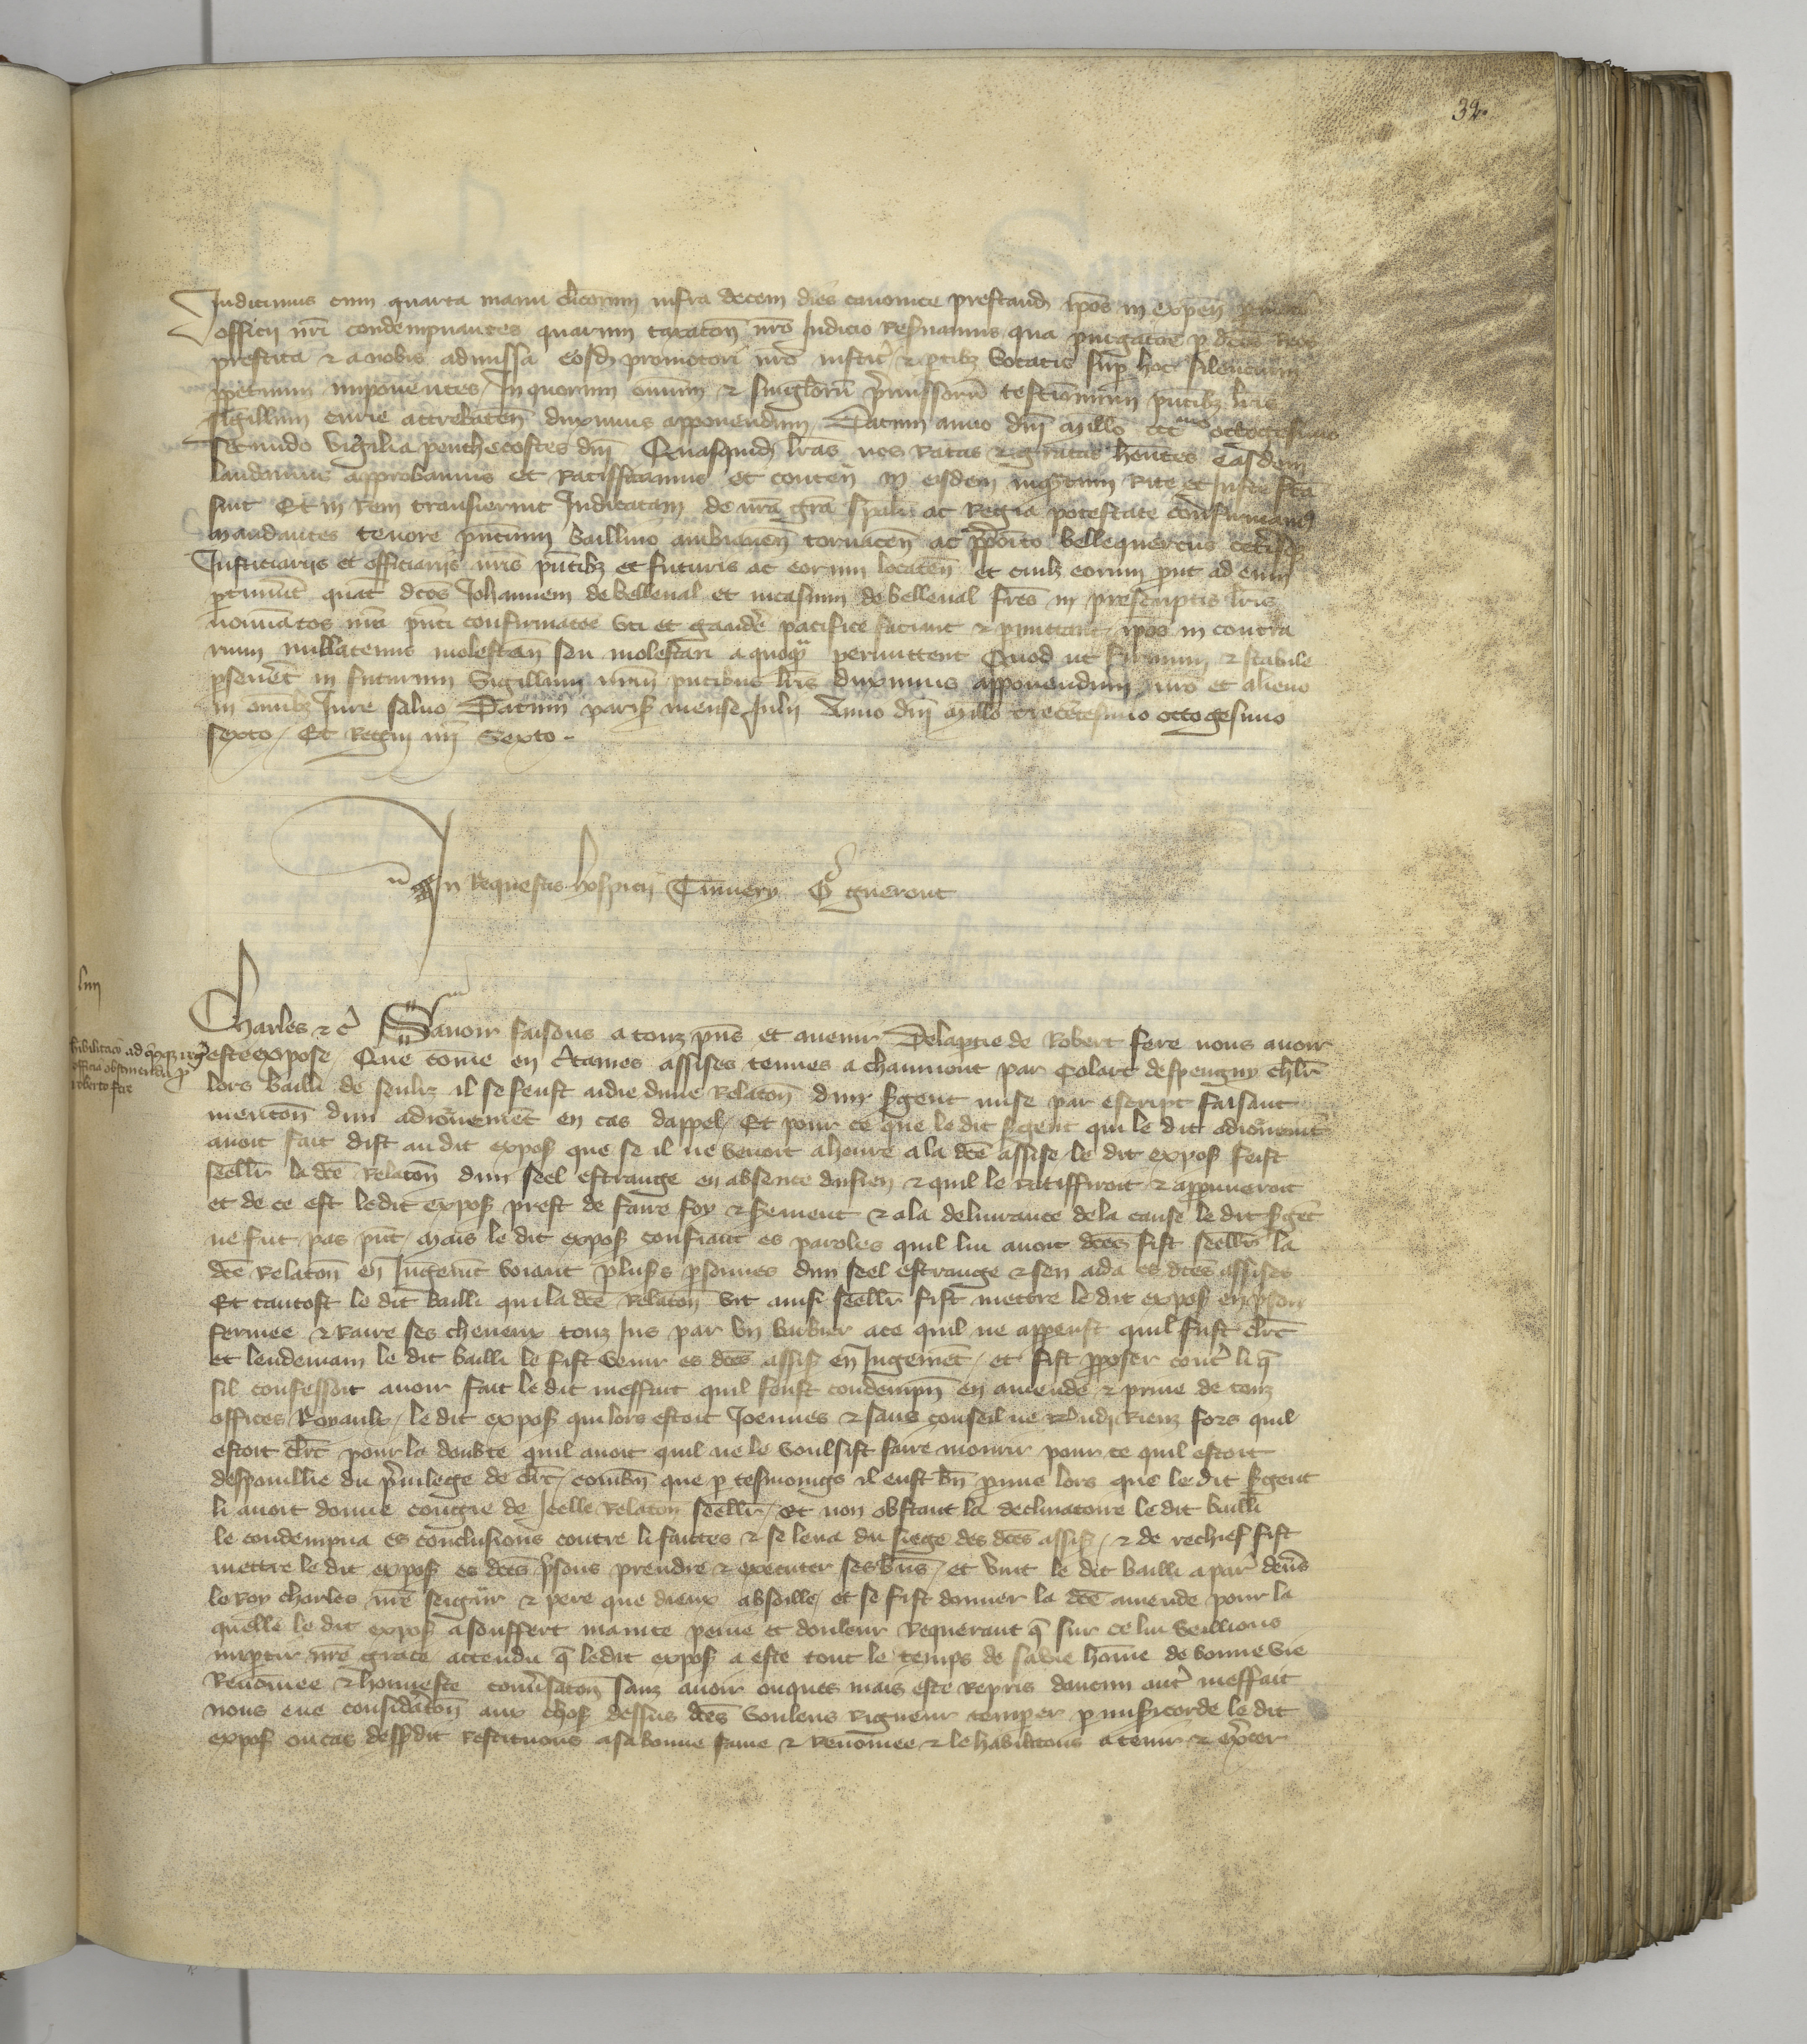 32
Indicimus cum quarta manu clicorum infra decem dies canonice prestand ipos in expen
officii nri condempnantes quarum taxaton nro Iudicio Reseruamus qua purgatoe p dcos Reos
prestita & a nobis admissa eosd promotori nro instit & ptibz vocatis sup hoc silencium
ppetuum imponentes / In quorum omium & singlorū p̄missorū testimonium pntibz lris
sigillum curie attrebaten duximus apponendum Datum anno dni Millo ccc mo octogesimo
secundo vigilia penthecostes dni Quasquid lras nos Ratas & gratas hentes easdem
laudamus approbamus et Ratifficamus et conten in eisdem inqntum Rite et Iuste fca
sint Et in Rem transierint Iudicatam de nra gra spali ac Regia potestate confirmam
mandantes tenore pntium baillivo ambianen tornacen ac pposito bellequercus ceterisqz
Iusticiariis et officiariis nris pntibz et futuris ac eorum locaten et cuilz eorum put ad eum
ptinuit quat dcos Iohannem de belleual et incasium de belleual fres in prescriptis lris
nomiatos nra pnti confirmatoe vti et gaudē pacifice faciant & pmittant ipos in contra
rium nullatenus molestan seu molestari a quoqz permittent Quod ut firmum & stabile
pseuet in futurum Sigillum nrm pntibus lris duximus apponendum nro et alieno
in omibz Iure saluo Datum paris mense Iulii Anno dni Millo trecetesimo octogesimo
sexto / Et Regni nri Sexto .
In Requestis hospicii G guerout
liiij
Charles & c Sauoir faisons a touz pns et auenir De la ptie de Robert fere nous auoir
habilitaco ad
officia obtinenda p
roberto fere
este expose / Que come en ctaines assises tenues a chaumont par Colart despengny chlr
lors bailli de senliz il se feust aidie dune Relaton dun sgent mise par escript faisant
menton dun adiornement en cas dappel / Et pour ce que le dit sgent qui le dit adiornemt
auoit fait dist au dit expos que se il ne venoit a heure a la dce assise le dit expos feist
seeller la dce Relaton dun seel estrange en absence du sien & quil le ratiffiroit & approuueroit
et de ce est ledit expos prest de faire foy & serement & a la deliurance de la cause le dit sgent
ne fut pas pnt / Mais le dit expos confiant es paroles quil lui auoit dces fist seeller la
dce Relaton en Iugemt voiant pluss psonnes dun seel estrange & sen aida es dces assises
Et tantost le dit bailli qui la dce Relaton vit ainsi seeller fist mettre le dit expos en pson
fermee & Raire ses cheueux touz ius par vn barbier ace quil ne apparust quil fust clrc
et lendemain le dit bailli le fist venir es dces assis en Iugemet / et fist pposer cont li q
sil confessoit auoir fait le dit meffait quil feust condempn en amende & priue de touz
offices Royaulx / le dit expos qui lors estoit Ioennes & sans conseil ne Rndi Rienz fors quil
estoit clrc pour la doubte quil auoit quil ne le voulsist faire mourir pour ce quil estoit
despouillie du p̄uilege de clrc / combn que p tesmoings il eust bn proue lors que le dit sgent
li auoit donne congie de Icelle Relaton seeller / Et non obstant la declinatoire le dit bailli
le condempna es conclusions contre li faictes & se leua du siege des dces assis / & de rechief fist
mettre le dit expos es dces psons prendre & executer ses biens / et vint le dit bailli a par deus
le Roy charles nre seignr & pere que dieux absoille / et se fist donner la dce amende pour la
quelle le dit expos a souffert mainte peine et douleur Requerant q sur ce lui veillions
impartir nre grace attendu q ledit expos a este tout le temps de sa vie home de bonne vie
Renomee & honneste conusaton sanz auoir onques mais este repris daucun aut meffait
nous eue consideraton aux chos dessus dces voulens Rigueur temper p misericorde le dit
expos ou cas dessdit restituons a sa bonne fame & Renomee & le habilitons a tenir & excer